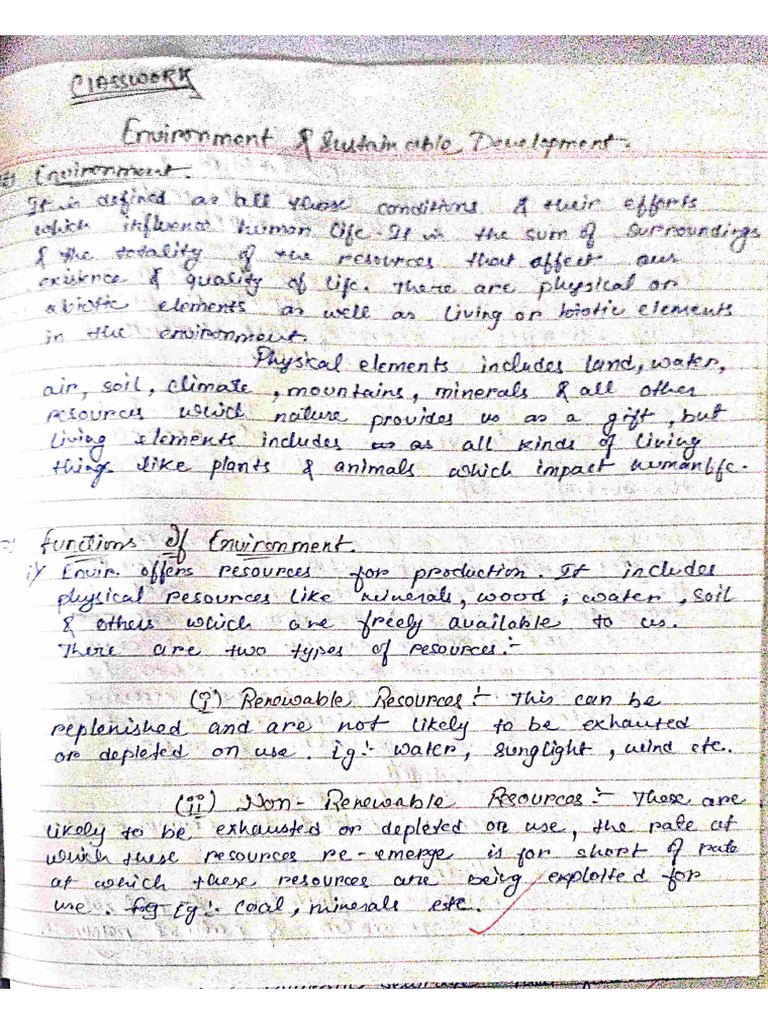 CLASSWORK
Environment & Sustainable Development.
Environment.
It is defined as all those conditions & their efforts
which influence human life. It is the sum of surroundings
& the totality of the resources that affect our
existence & quality of life. There are physical or
abiotic elements as well as living or biotic elements
in the environment.
Physical elements includes land, water,
air, soil, climate, mountains, minerals & all other
resources which nature provides us as a gift, but
living elements includes as all kinds of living
things like plants & animals which impact human life.
Functions Of Environment.
i) Envir. offers resources for production. It includes
physical resources like minerals, wood, water, soil
& others which are freely available to us.
There are two types of resources:-
(i) Renewable Resources:- This can be
replenished and are not likely to be exhausted
or depleted on use. ig:- water, sunglight, wind etc.
(ii) Non-Renewable Resources:- These are
likely to be exhausted or depleted on use, the rate at
which these resources re-emerge is for short of rate
at which these resources are being exploited for
use. Eg:- coal, minerals etc.